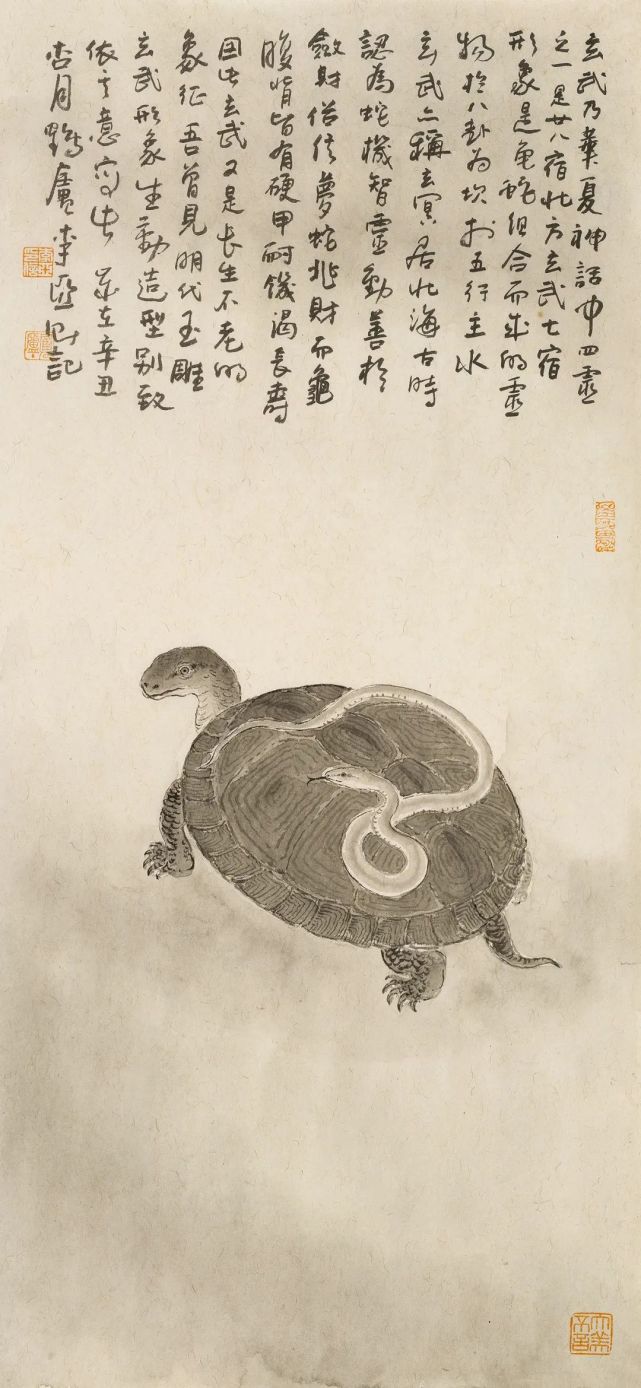 玄武乃華夏神話中四靈
之一是廿八宿北方玄武七宿
形象是龟蛇组合而成的靈
物於八卦为坎於五行主水
玄武亦稱玄冥居北海古時
認為蛇機智靈動善於
斂財俗信夢蛇兆財而龜
腹背皆有硬甲耐饑渴長壽
因此玄武又是長生不老的
象征吾曾見明代玉雕
玄武形象生動造型别致
依其意寫此歲在辛丑
杏月 廬李 記
大美不言